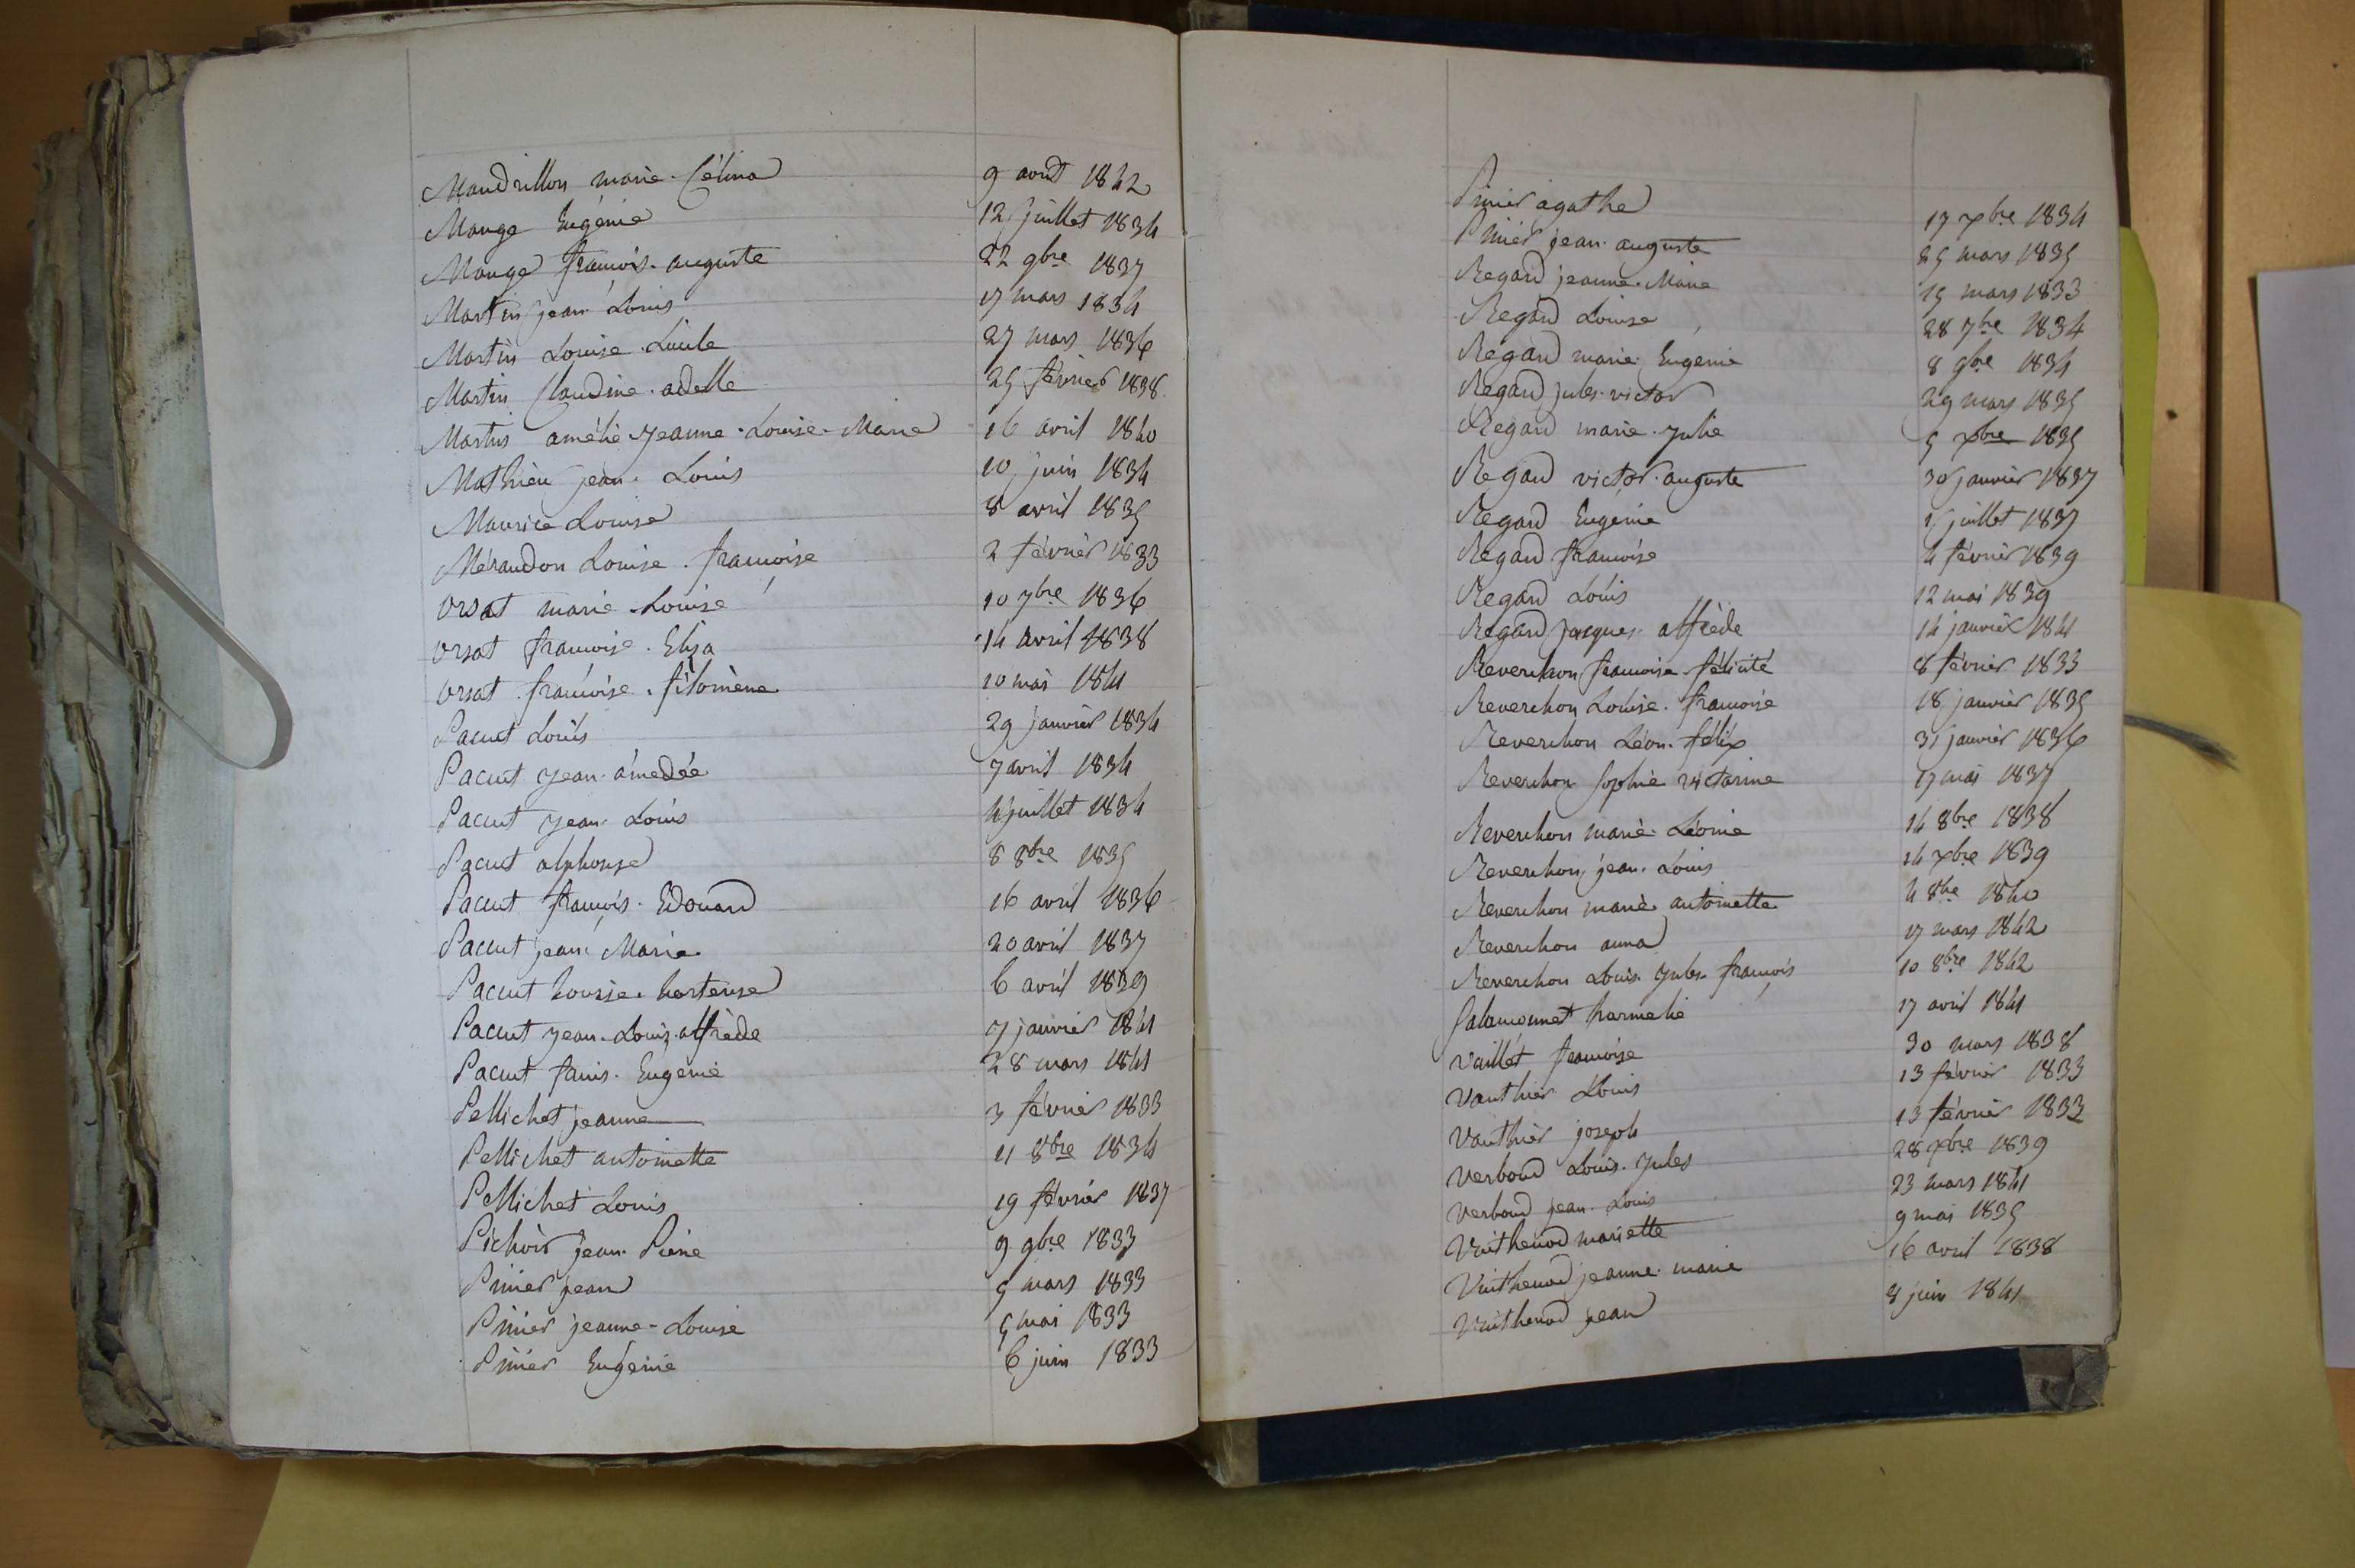 Mandrillon marie. Célina 9 août 1842
Mange Eugénie 12 juillet 1834
Mange françois. auguste 22 9bre 1837
Martin jean Louis 17 mars 1834
Martin Louise 27 mars 1836
Martin Claudine. adelle 25 février 1838
Martin amélie. jeanne. Louise. Marie 16 avril 1840
Mathieu jean. Louis 10 juin 1834
Maurice Louise 8 avril 1835
Méraudon Louise. françoise 2 février 1833
Orsat marie. Louise 10 7bre 1836
Orsat françoise. Elisa 14 avril 1838
Orsat françoise. filomène 10 mai 1841
Pacut Louis 29 janvier 1834
Pacut jean. amedée 7 avril 1834
Pacut jean. Louis 4 juillet 1834
Pacut alphonse 8 8bre 1835
Pacut françois. Edouard 16 avril 1836
Pacut jean Marie 20 avril 1837
Pacut Lousie. hortense 6 avril 1839
Pacut jean. Louis. alfrède 7 janvier 1841
Pacut fanis. Eugenie 28 mars 1841
Pellichet jeanne 3 février 1833
Pellichet antoinette 11 8bre 1834
Pellichet Louis 19 février 1837
Pichoir jean. Pierre 9 9bre 1833
Prinier jean 9 mars 1833
Prinier jeanne-Louise 5 mai 1833
Prinier Eugenie 6 juin 1833
Prinier agathe 17 xbre 1834
Prinier jean. auguste 25 mars 1835
Regard jeanne. Marie 15 mars 1833
Regard Louise 28 7bre 1834
Regard marie. Eugenie 8 9bre 1834
Regard jules. victor 29 mars 1835
Regard marie. Julie 5 xbre 1835
Regard victor. auguste 30 janvier 1837
Regard Eugenie juillet 1837
Regard françoise 4 février 1839
Regard Louis 12 mai 1839
Regard jacques. alfrède 14 janvier 1841
Reverchon françoise félicité 8 février 1833
Reverchon Louise. françoise 18 janvier 1835
Reverchon Léon. félix 31 janvier 1836
Reverchon Sophie victorine 17 mai 1837
Reverchon marie. Léonie 14 8bre 1838
Reverchon jean. Louis 14 xbre 1839
Reverchon marie antoinette 4 8bre 1840
Reverchon anna 17 mars 1842
Reverchon Louis. jules. françois 10 8bre 1842
Salamonnet harmelie 17 avril 1841
Vaillet françoise 30 mars 1838
Vauthier Louis 13 février 1833
Vauthier joseph 13 février 1833
Verboud Louis. Jules 28 xbre 1839
Verboud jean. Louis 23 mars 1841
Vuithenod mariette 9 mai 1835
Vuithenod jeanne. marie 16 avril 1838
Vuithenod jean 8 juin 1841